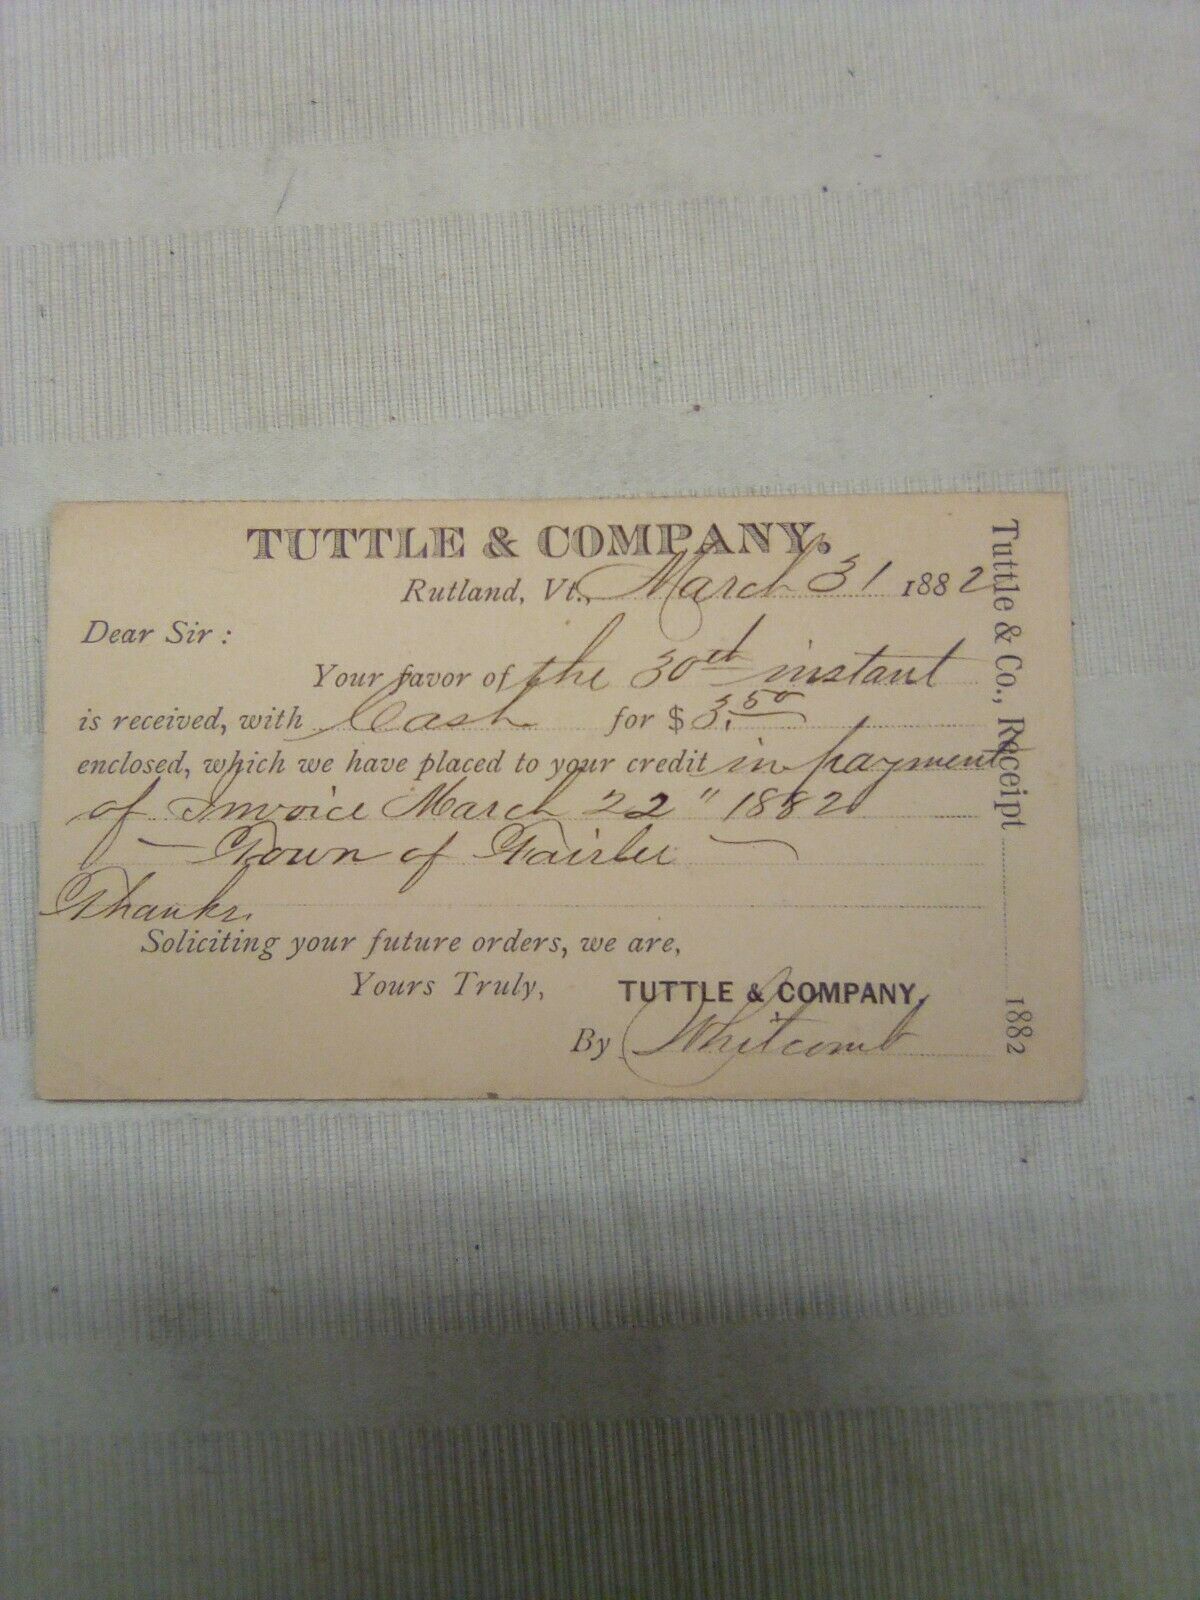 TUTTLE & COMPANY.
Rutland, Vt., March 31 1882
Dear Sir:
Your favor of the 30th instant
is received, with Cash for $3.50
enclosed, which we have placed to your credit in payment
of Invoice March 22" 1882
Town of Fairlee
Thanks.
Soliciting your future orders, we are,
Yours Truly, TUTTLE & COMPANY,
By Whitcomb
Tuttle & Co., Receipt 1882